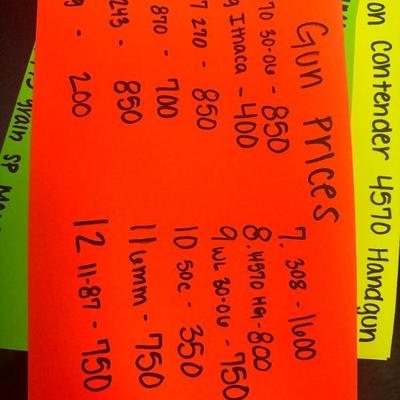 Gun Prices
70 30-06 - 850
9 Ithaca - 400
7 270 - 850
870 - 700
243 - 850
9 - 200
7. 308 - 1600
8. 4570 HG - 800
9 WL 30-06 - 750
10 50c - 350
11 6mm - 750
12 11-87 - 750
on Contender 4570 Handgun
grain SP